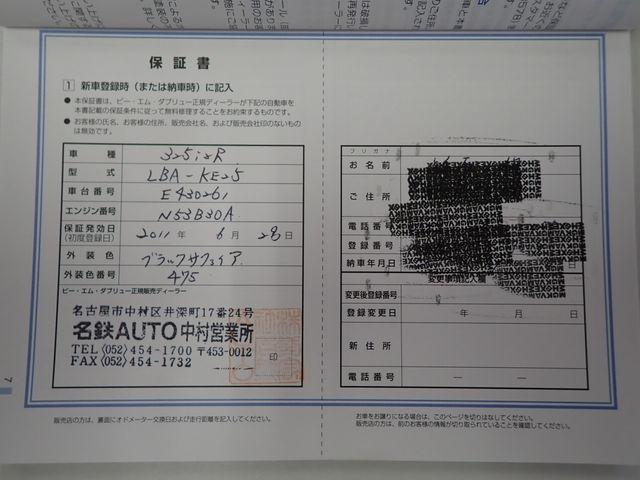 保証書
1 新車登録時(または納車時)に記入
● 本保証書は、ビー・エム・ダブリュー正規ディーラーが下記の自動車を
本書記載の保証条件に従って無料修理することをお約束するものです。
● お客様の氏名、お客様の住所、販売会社名、および販売会社印のないもの
は無効です。
車種 325i
型式 LBA-KE25
車台番号 E430261
エンジン番号 N53B30A
保証発効日 2011年 6月 28日
(初度登録日)
外装色 ブラックサファイア
外装色番号 475
ビー・エム・ダブリュー正規販売ディーラー
名古屋市中村区井深町17番24号
名鉄AUTO 中村営業所
TEL〈052〉454-1700 〒453-0012
FAX〈052〉454-1732
印
販売店の方は、裏面にオドメーター交換日および走行距離を記入してください。
7
フリガナ
お名前
ご住所
電話番号
登録番号
納車年月日
変更事項記入欄
変更後登録番号
登録変更日 年 月 日
新住所
電話番号 — —
お車をお譲りになる場合は、このページを切りはなしてください。
販売店の方は、前のお客様の情報が切り取られていることを確認してください。